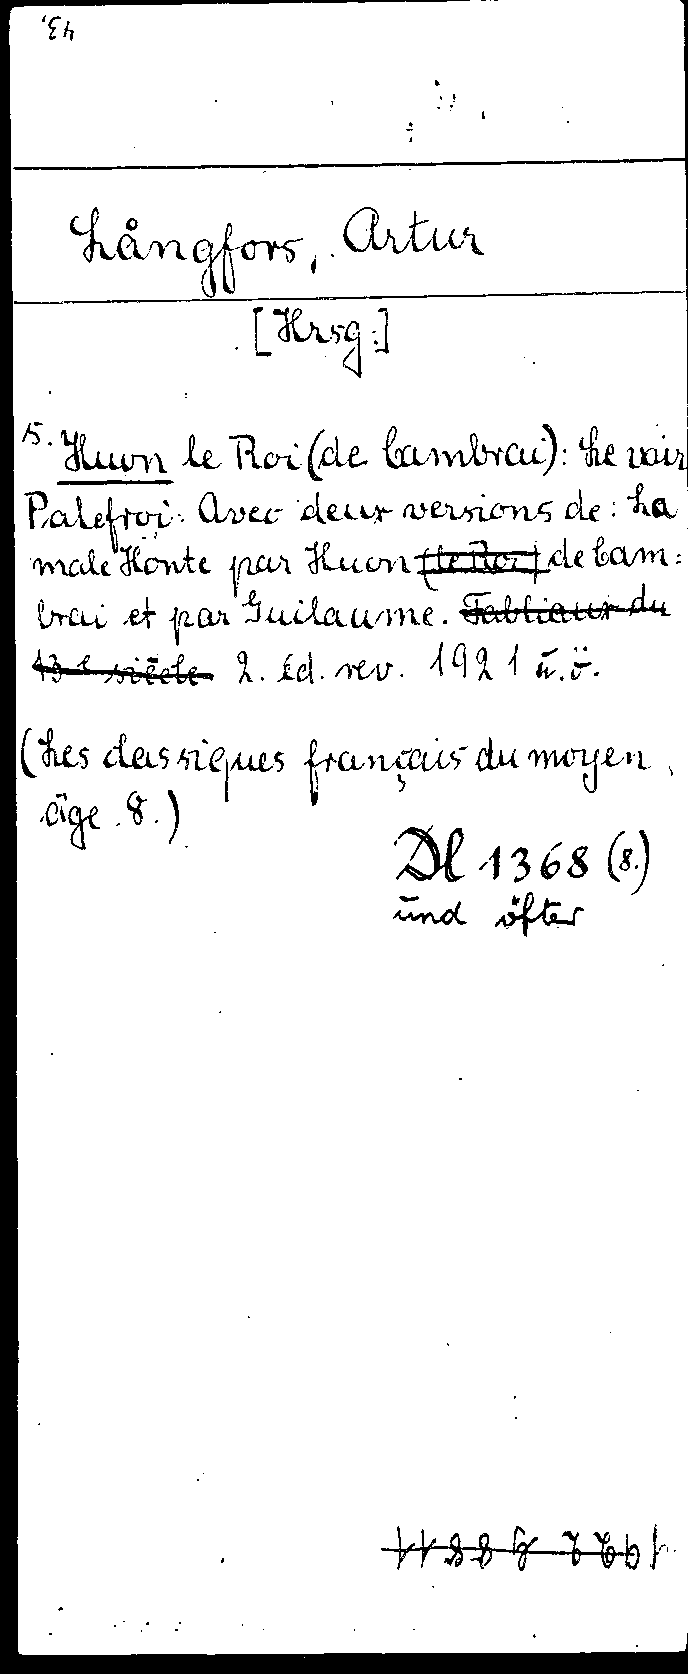 43,
Långfors, Artur
[Hrsg.]
15. Huon le Roi (de Cambrai): Le vair
Palefroi. Avec deux versions de: La
male Honte par Huon (le Roi) de Cam=
brai et par Guilaume. Fabliaux du
13e siècle 2. éd. rev. 1921 u. ö.
(Les classiques français du moyen
âge. 8.)
Dl 1368 (8.)
und öfter